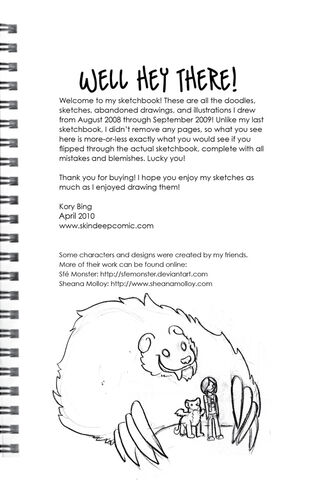 WELL HEY THERE!
Welcome to my sketchbook! These are all the doodles,
sketches, abandoned drawings, and illustrations I drew
from August 2008 through September 2009! Unlike my last
sketchbook, I didn't remove any pages, so what you see
here is more-or-less exactly what you would see if you
flipped through the actual sketchbook, complete with all
mistakes and blemishes. Lucky you!
Thank you for buying! I hope you enjoy my sketches as
much as I enjoyed drawing them!
Kory Bing
April 2010
www.skindeepcomic.com
Some characters and designs were created by my friends.
More of their work can be found online:
Sfé Monster: http://sfemonster.deviantart.com
Sheana Molloy: http://www.sheanamolloy.com